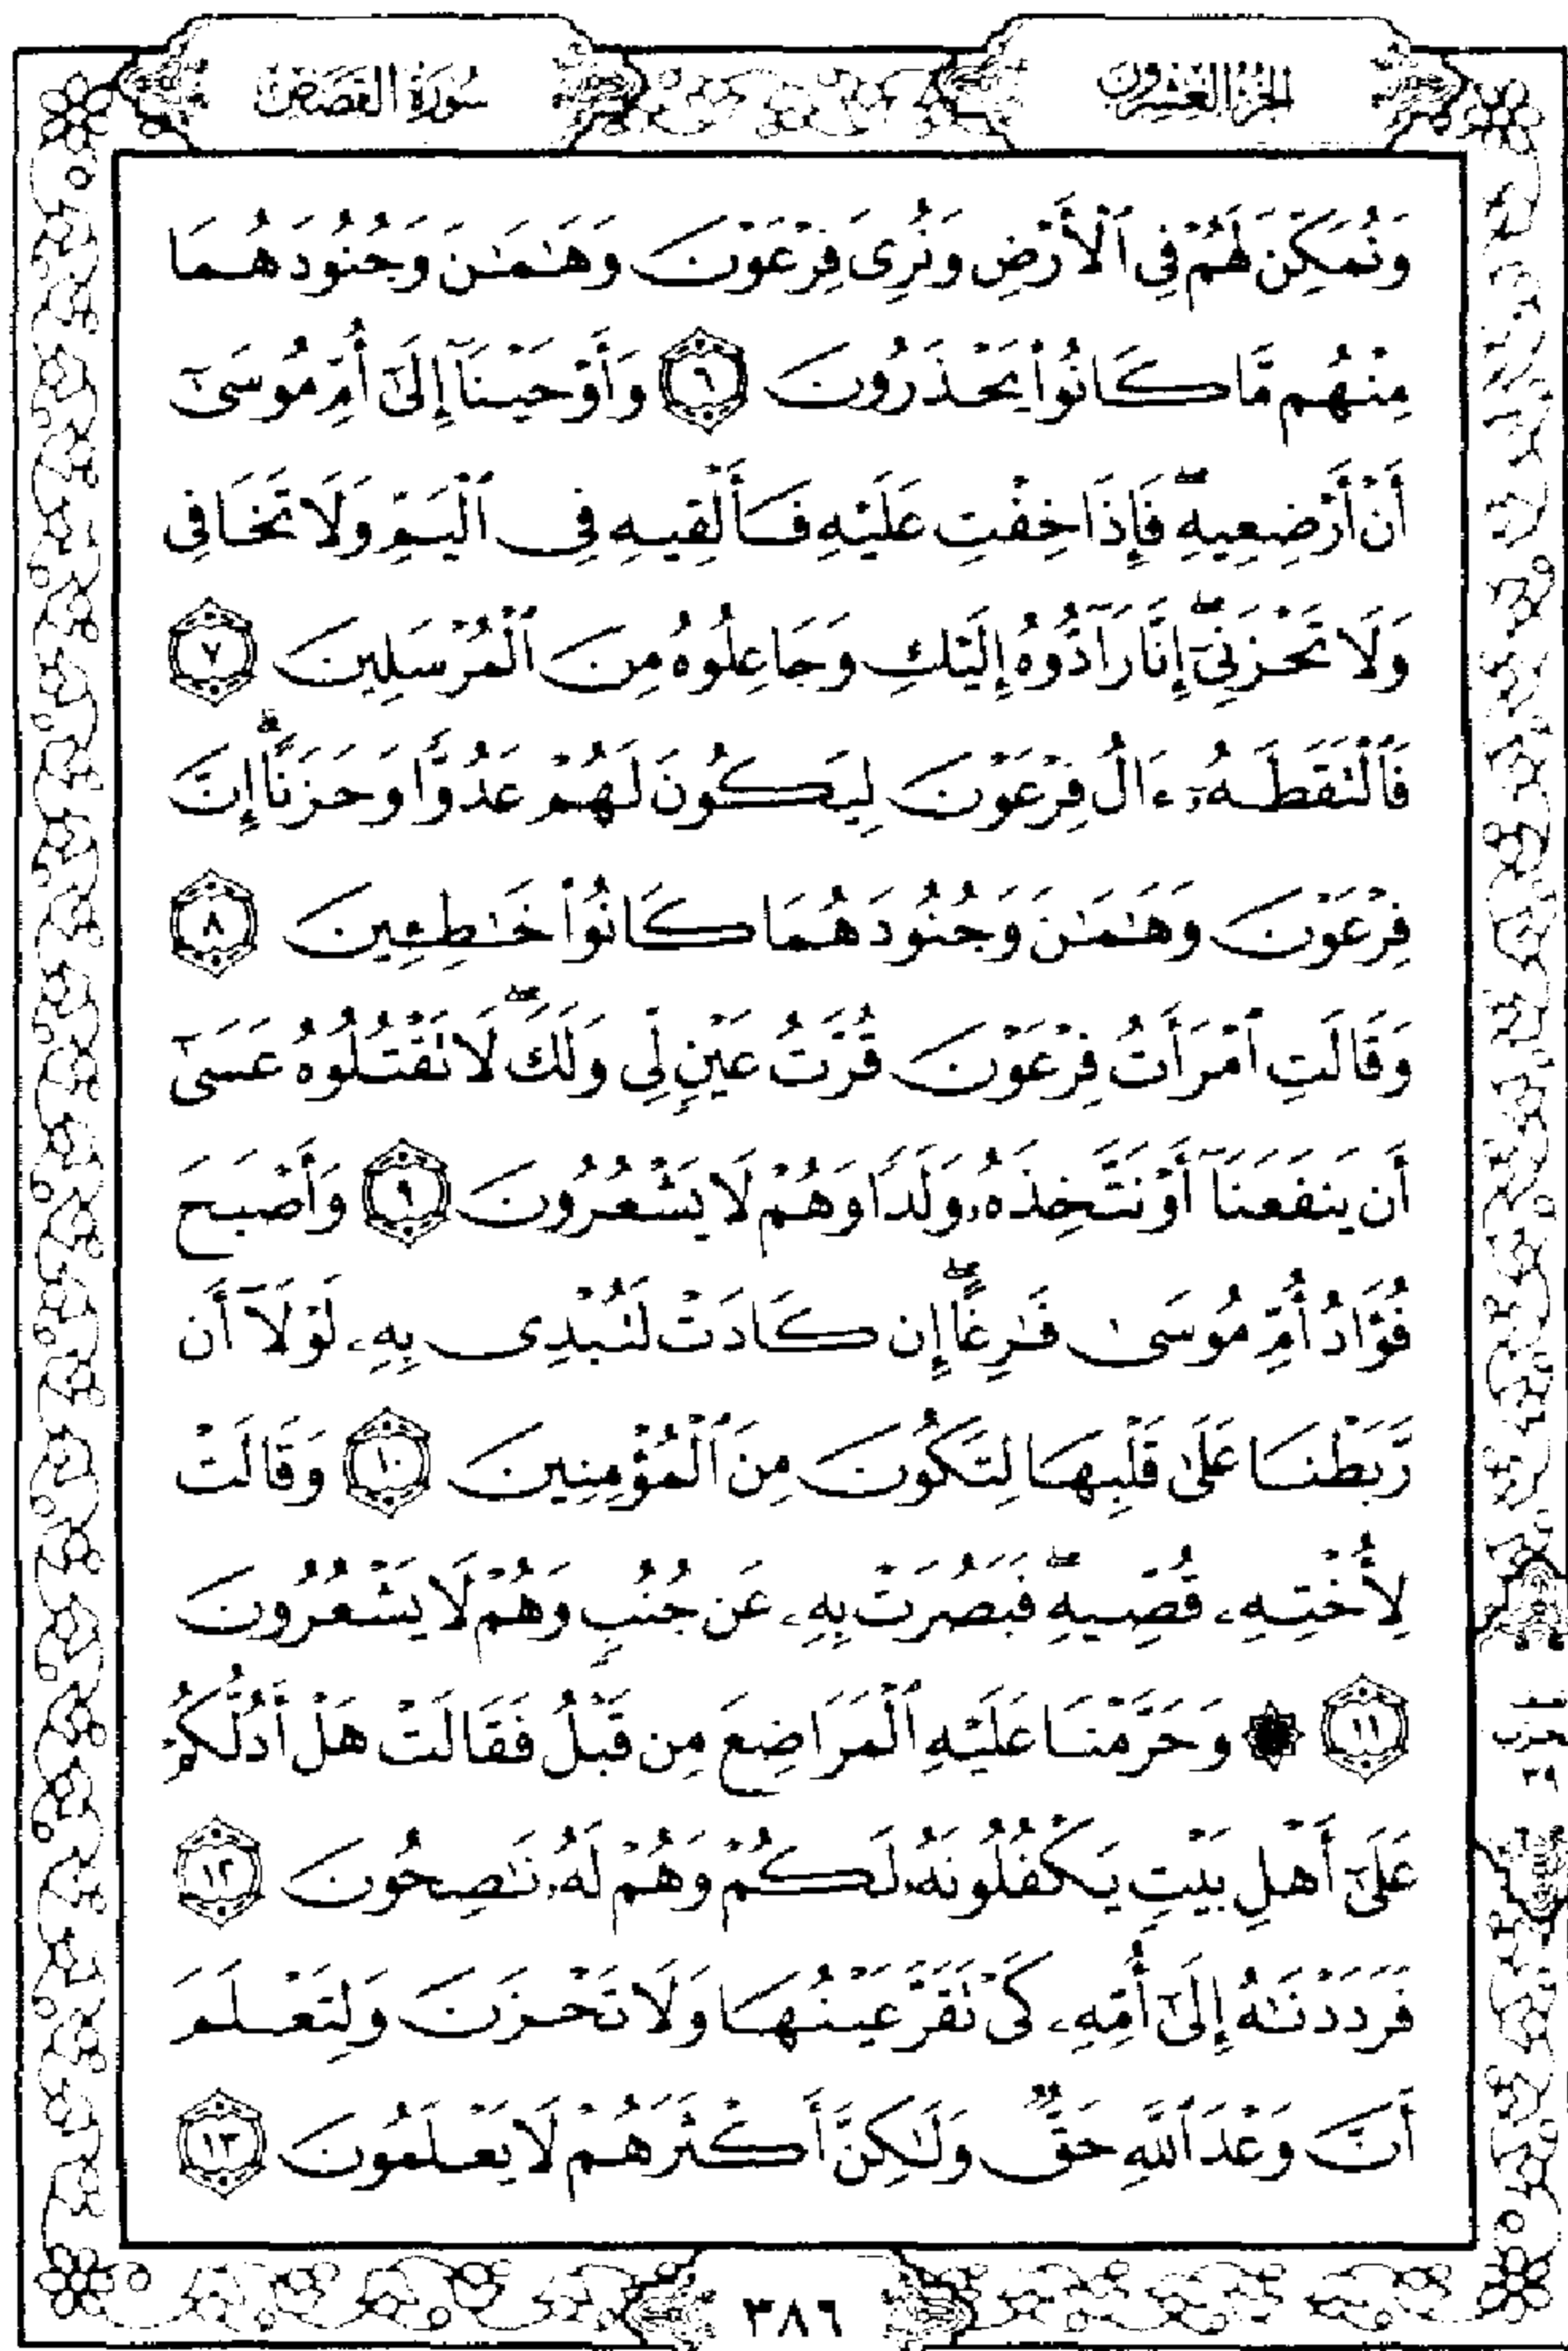 الجزء العشرون
سورة القصص
وَنُمَكِّنَ لَهُمْ فِى ٱلْأَرْضِ وَنُرِىَ فِرْعَوْنَ وَهَـٰمَـٰنَ وَجُنُودَهُمَا
مِنْهُم مَّا كَانُوا۟ يَحْذَرُونَ ٦ وَأَوْحَيْنَآ إِلَىٰٓ أُمِّ مُوسَىٰٓ
أَنْ أَرْضِعِيهِ ۖ فَإِذَا خِفْتِ عَلَيْهِ فَأَلْقِيهِ فِى ٱلْيَمِّ وَلَا تَخَافِى
وَلَا تَحْزَنِىٓ ۖ إِنَّا رَآدُّوهُ إِلَيْكِ وَجَاعِلُوهُ مِنَ ٱلْمُرْسَلِينَ ٧
فَٱلْتَقَطَهُۥٓ ءَالُ فِرْعَوْنَ لِيَكُونَ لَهُمْ عَدُوًّا وَحَزَنًا ۗ إِنَّ
فِرْعَوْنَ وَهَـٰمَـٰنَ وَجُنُودَهُمَا كَانُوا۟ خَـٰطِـِٔينَ ٨
وَقَالَتِ ٱمْرَأَتُ فِرْعَوْنَ قُرَّتُ عَيْنٍ لِّى وَلَكَ ۖ لَا تَقْتُلُوهُ عَسَىٰٓ
أَن يَنفَعَنَآ أَوْ نَتَّخِذَهُۥ وَلَدًا وَهُمْ لَا يَشْعُرُونَ ٩ وَأَصْبَحَ
فُؤَادُ أُمِّ مُوسَىٰ فَـٰرِغًا ۖ إِن كَادَتْ لَتُبْدِى بِهِۦ لَوْلَآ أَن
رَّبَطْنَا عَلَىٰ قَلْبِهَا لِتَكُونَ مِنَ ٱلْمُؤْمِنِينَ ١٠ وَقَالَتْ
لِأُخْتِهِۦ قُصِّيهِ ۖ فَبَصُرَتْ بِهِۦ عَن جُنُبٍ وَهُمْ لَا يَشْعُرُونَ
١١ ۞ وَحَرَّمْنَا عَلَيْهِ ٱلْمَرَاضِعَ مِن قَبْلُ فَقَالَتْ هَلْ أَدُلُّكُمْ
عَلَىٰٓ أَهْلِ بَيْتٍ يَكْفُلُونَهُۥ لَكُمْ وَهُمْ لَهُۥ نَـٰصِحُونَ ١٢
فَرَدَدْنَـٰهُ إِلَىٰٓ أُمِّهِۦ كَىْ تَقَرَّ عَيْنُهَا وَلَا تَحْزَنَ وَلِتَعْلَمَ
أَنَّ وَعْدَ ٱللَّهِ حَقٌّ وَلَـٰكِنَّ أَكْثَرَهُمْ لَا يَعْلَمُونَ ١٣
٣٨٦